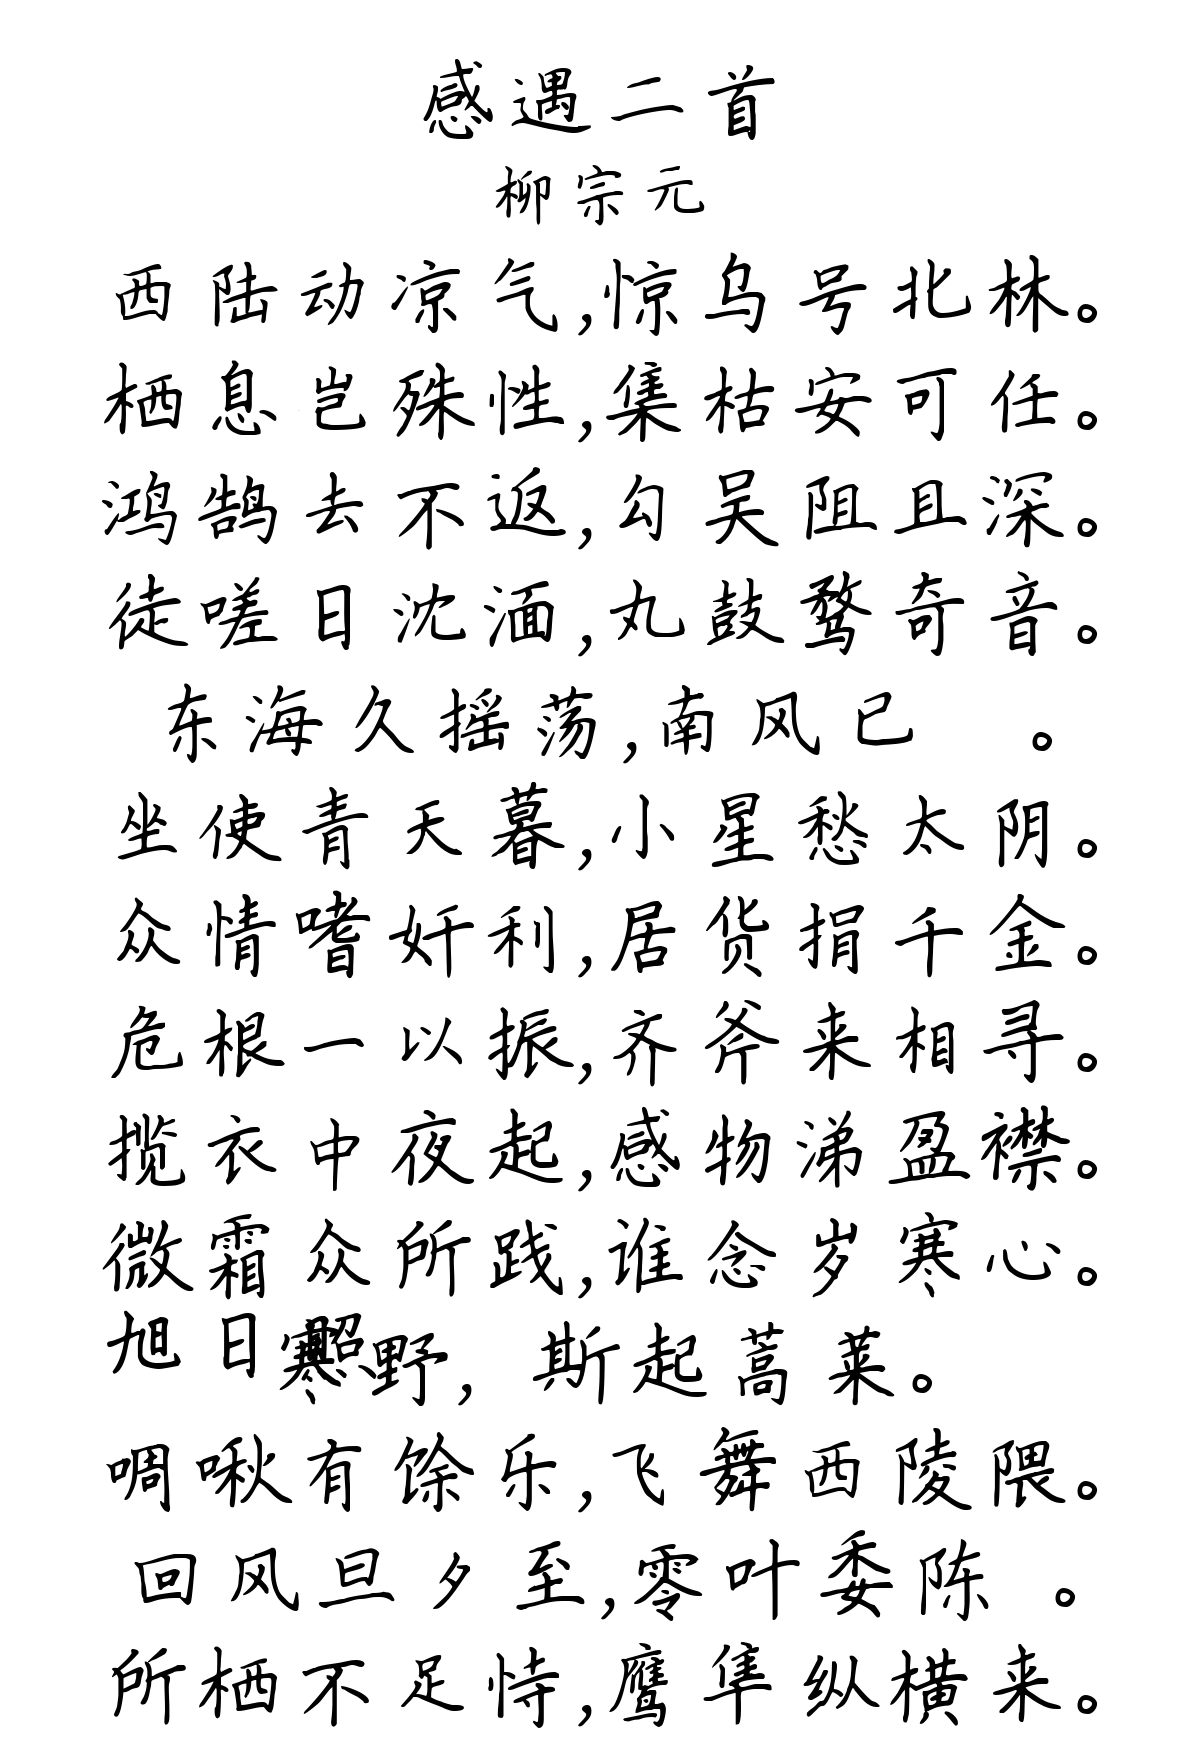 感遇二首
柳宗元
西陆动凉气,惊乌号北林。
栖息岂殊性,集枯安可任。
鸿鹄去不返,勾吴阻且深。
徒嗟日沈湎,丸鼓骛奇音。
东海久摇荡,南风已 。
坐使青天暮,小星愁太阴。
众情嗜奸利,居货捐千金。
危根一以振,齐斧来相寻。
揽衣中夜起,感物涕盈襟。
微霜众所践,谁念岁寒心。
旭日照寒野,斯起蒿莱。
啁啾有馀乐,飞舞西陵隈。
回风旦夕至,零叶委陈 。
所栖不足恃,鹰隼纵横来。